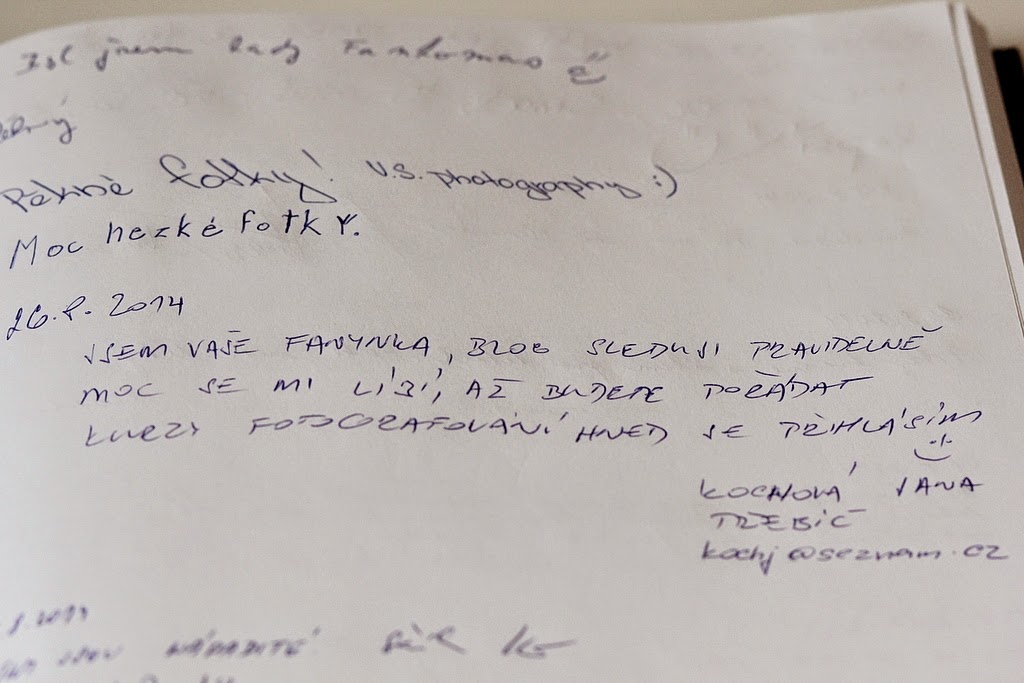 Byl jsem tady Fantomas
Pěkné fotky! V.S. photography :)
Moc hezké fotky.
26.8. 2014
JSEM VAŠE FANYNKA, BLOG SLEDUJI PRAVIDELNĚ
MOC SE MI LÍBÍ, AŽ BUDETE POŘÁDAT
KURZY FOTOGRAFOVÁNÍ HNED SE PŘIHLÁSÍM
KOCHOVÁ JANA
TŘEBÍČ
kochj@seznam.cz